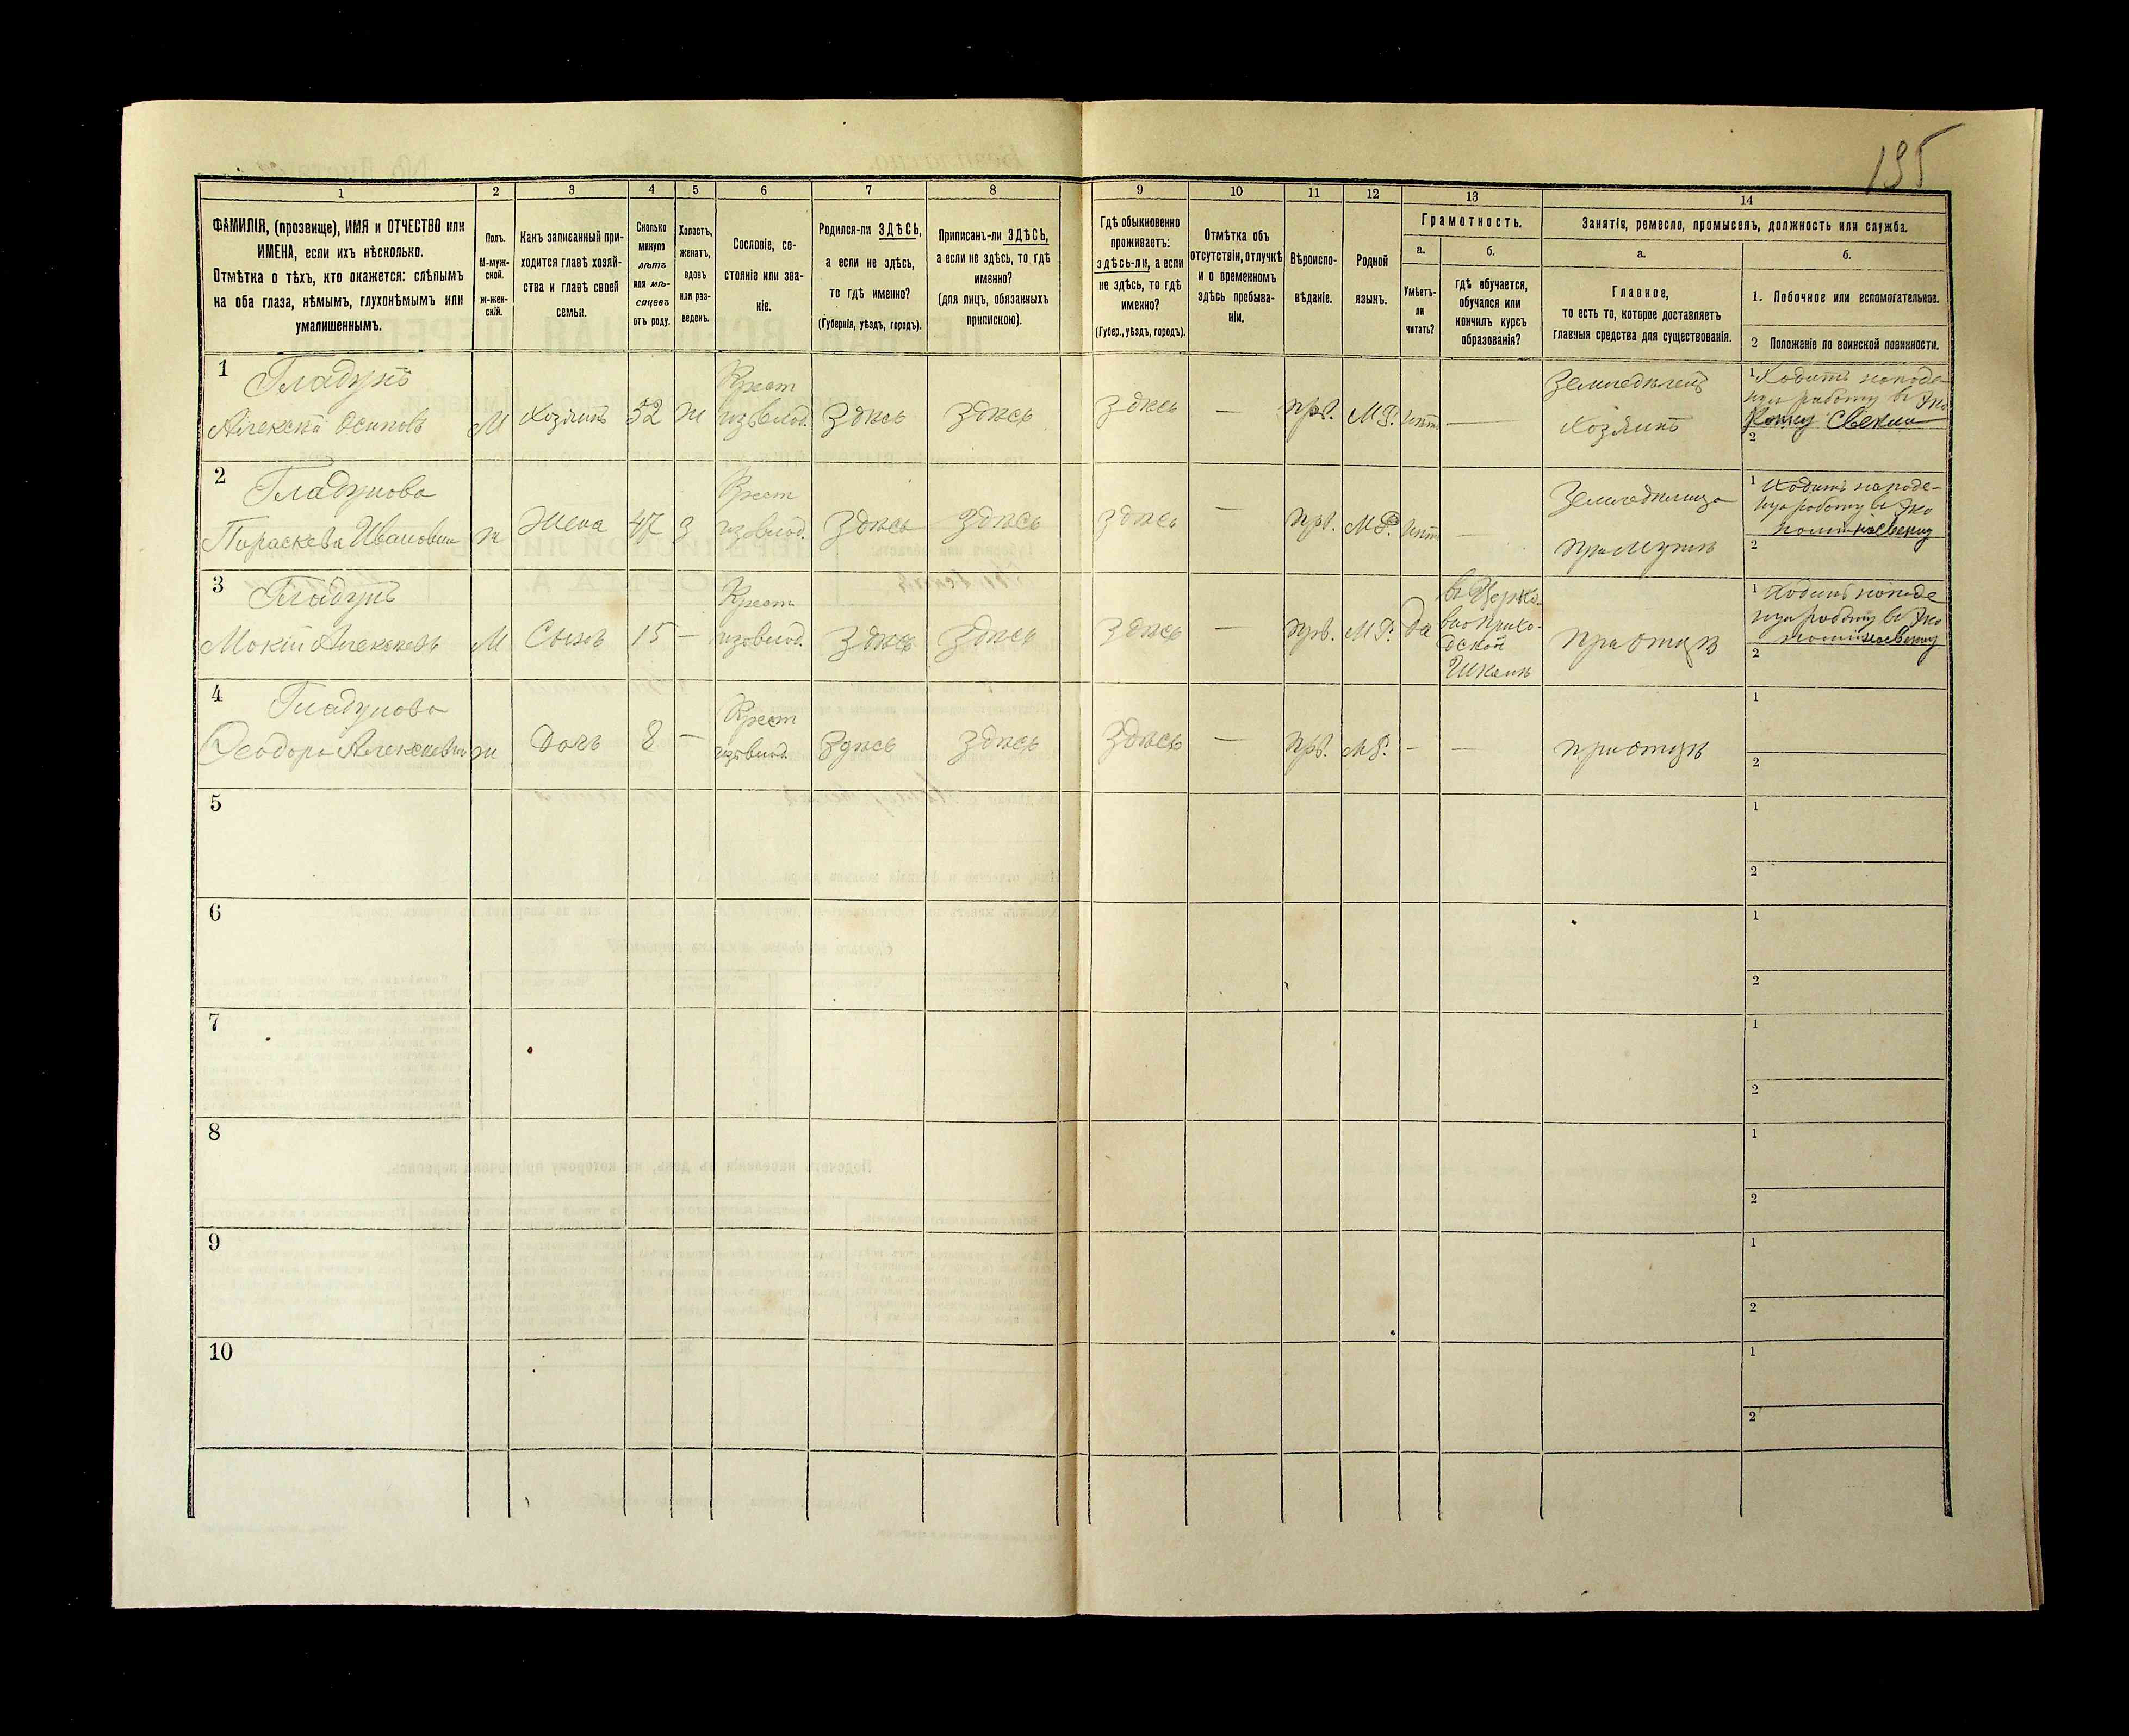 195
1
2
3
4
5
6
7
8
9
10
11
12
13
14
ФАМИЛІЯ, (прозвище), ИМЯ и ОТЧЕСТВО или
ИМЕНА, если ихъ нѣсколько.
Отмѣтка о тѣхъ, кто окажется: слѣпымъ
на оба глаза, нѣмымъ, глухонѣмымъ или
умалишеннымъ.
Полъ.
М-муж-
ской.
Ж-жен-
скій.
Какъ записанный при-
ходится главѣ хозяй-
ства и главѣ своей
семьи.
Сколько
минуло
лѣтъ
или мѣ-
сяцевъ
отъ роду.
Холостъ,
женатъ,
вдовъ
или раз-
веденъ.
Сословіе, со-
стояніе или зва-
ніе.
Родился-ли ЗДѢСЬ,
а если не здѣсь,
то гдѣ именно?
(Губернія, уѣздъ, городъ).
Приписанъ-ли ЗДѢСЬ,
а если не здѣсь, то гдѣ
именно?
(для лицъ, обязанныхъ
припискою).
Гдѣ обыкновенно
проживаетъ:
здѣсь-ли, а если
не здѣсь, то гдѣ
именно?
(Губер., уѣздъ, городъ).
Отмѣтка объ
отсутствіи, отлучкѣ
и о временномъ
здѣсь пребыва-
ніи.
Вѣроиспо-
вѣданіе.
Родной
языкъ.
Грамотность.
а.
Умѣетъ-
ли
читать?
б.
гдѣ обучается,
обучался или
кончилъ курсъ
образованія?
Занятія, ремесло, промыселъ, должность или служба.
а.
Главное,
то есть то, которое доставляетъ
главныя средства для существованія.
б.
1. Побочное или вспомогательное.
2 Положеніе по воинской повинности.
1
Гладунъ
Алексѣй Осиповъ
М
Хозяинъ
52
ж
Крест
изъ влад.
Здѣсь
Здѣсь
Здѣсь
—
прв.
М.Р.
нѣтъ
—
Земледѣлецъ
Хозяинъ
1 Ходитъ на поде-
ную работу въ Эко
2
2
Гладунова
Параскева Ивановна
ж
Жена
47
з
Крест
изъ влад.
Здѣсь
Здѣсь
Здѣсь
—
прв.
М.Р.
нѣтъ
—
Земледѣлица
при мужѣ
1 Ходитъ на поде-
ную работу въ Эко
2
3
Гладунъ
Мокій Алексѣевъ
М
Сынъ
15
—
Крест
изъ влад.
Здѣсь
Здѣсь
Здѣсь
—
прв.
М.Р.
да
въ Церко-
вно прихо-
дской
Школѣ
при отцѣ
1 Ходитъ на поде
ную работу въ Эко
2
4
Гладунова
Ѳеодора Алексѣевна
ж
Дочь
8
—
Крест
изъ влад.
Здѣсь
Здѣсь
Здѣсь
—
прв.
М.Р.
—
—
при отцѣ
1
2
5
1
2
6
1
2
7
1
2
8
1
2
9
1
2
10
1
2